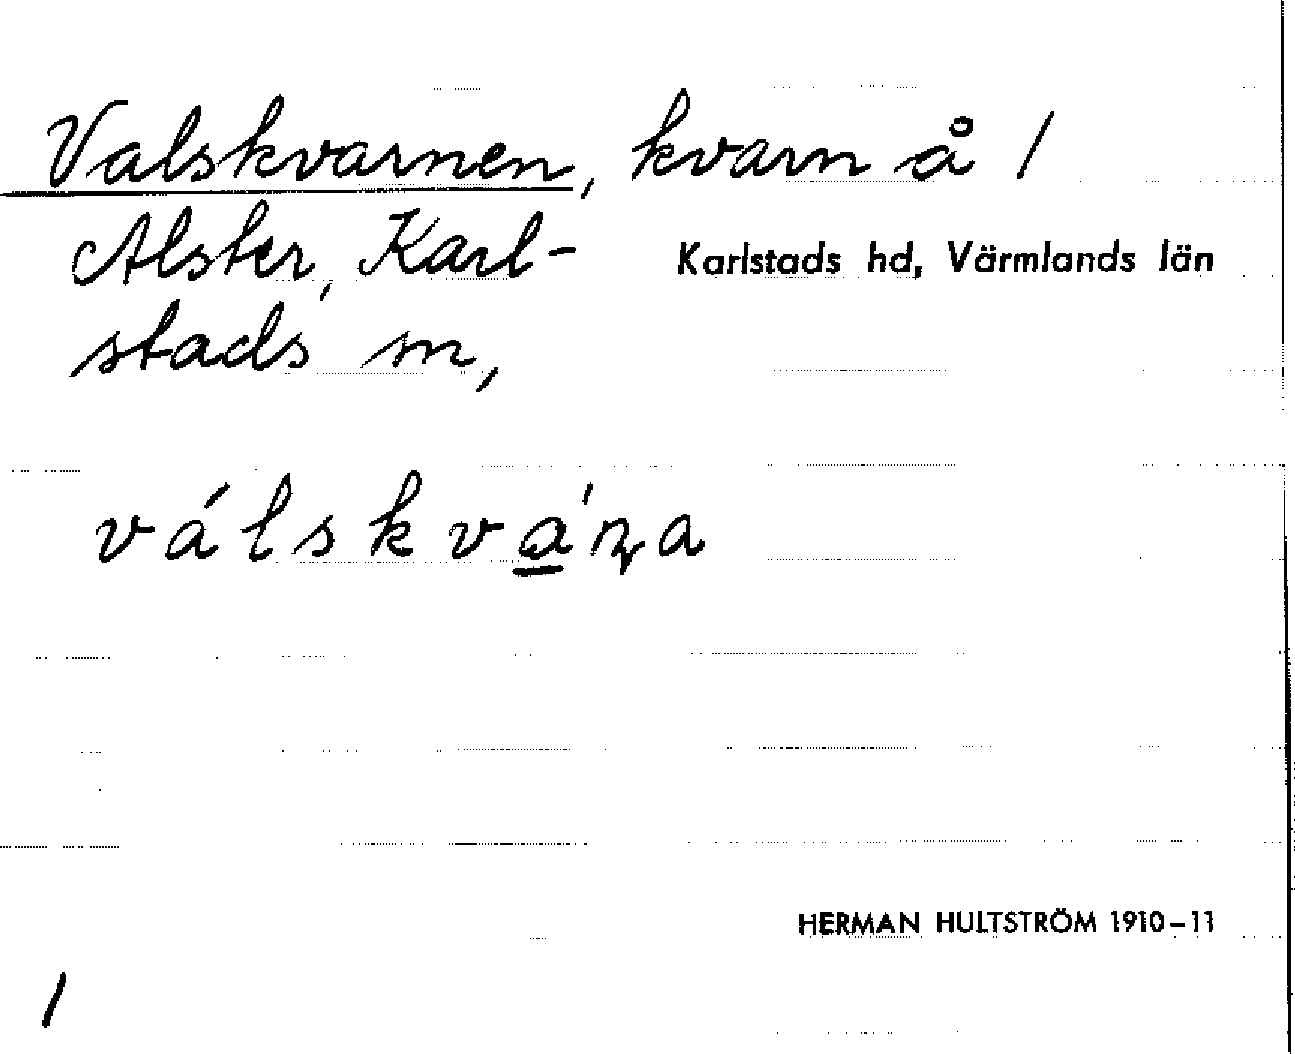 Valskvarnen, kvarn å /
Alster, Karl-
Karlstads hd, Värmlands län
stads sn,
válskvá̱ɳa
HERMAN HULTSTRÖM 1910–11
/